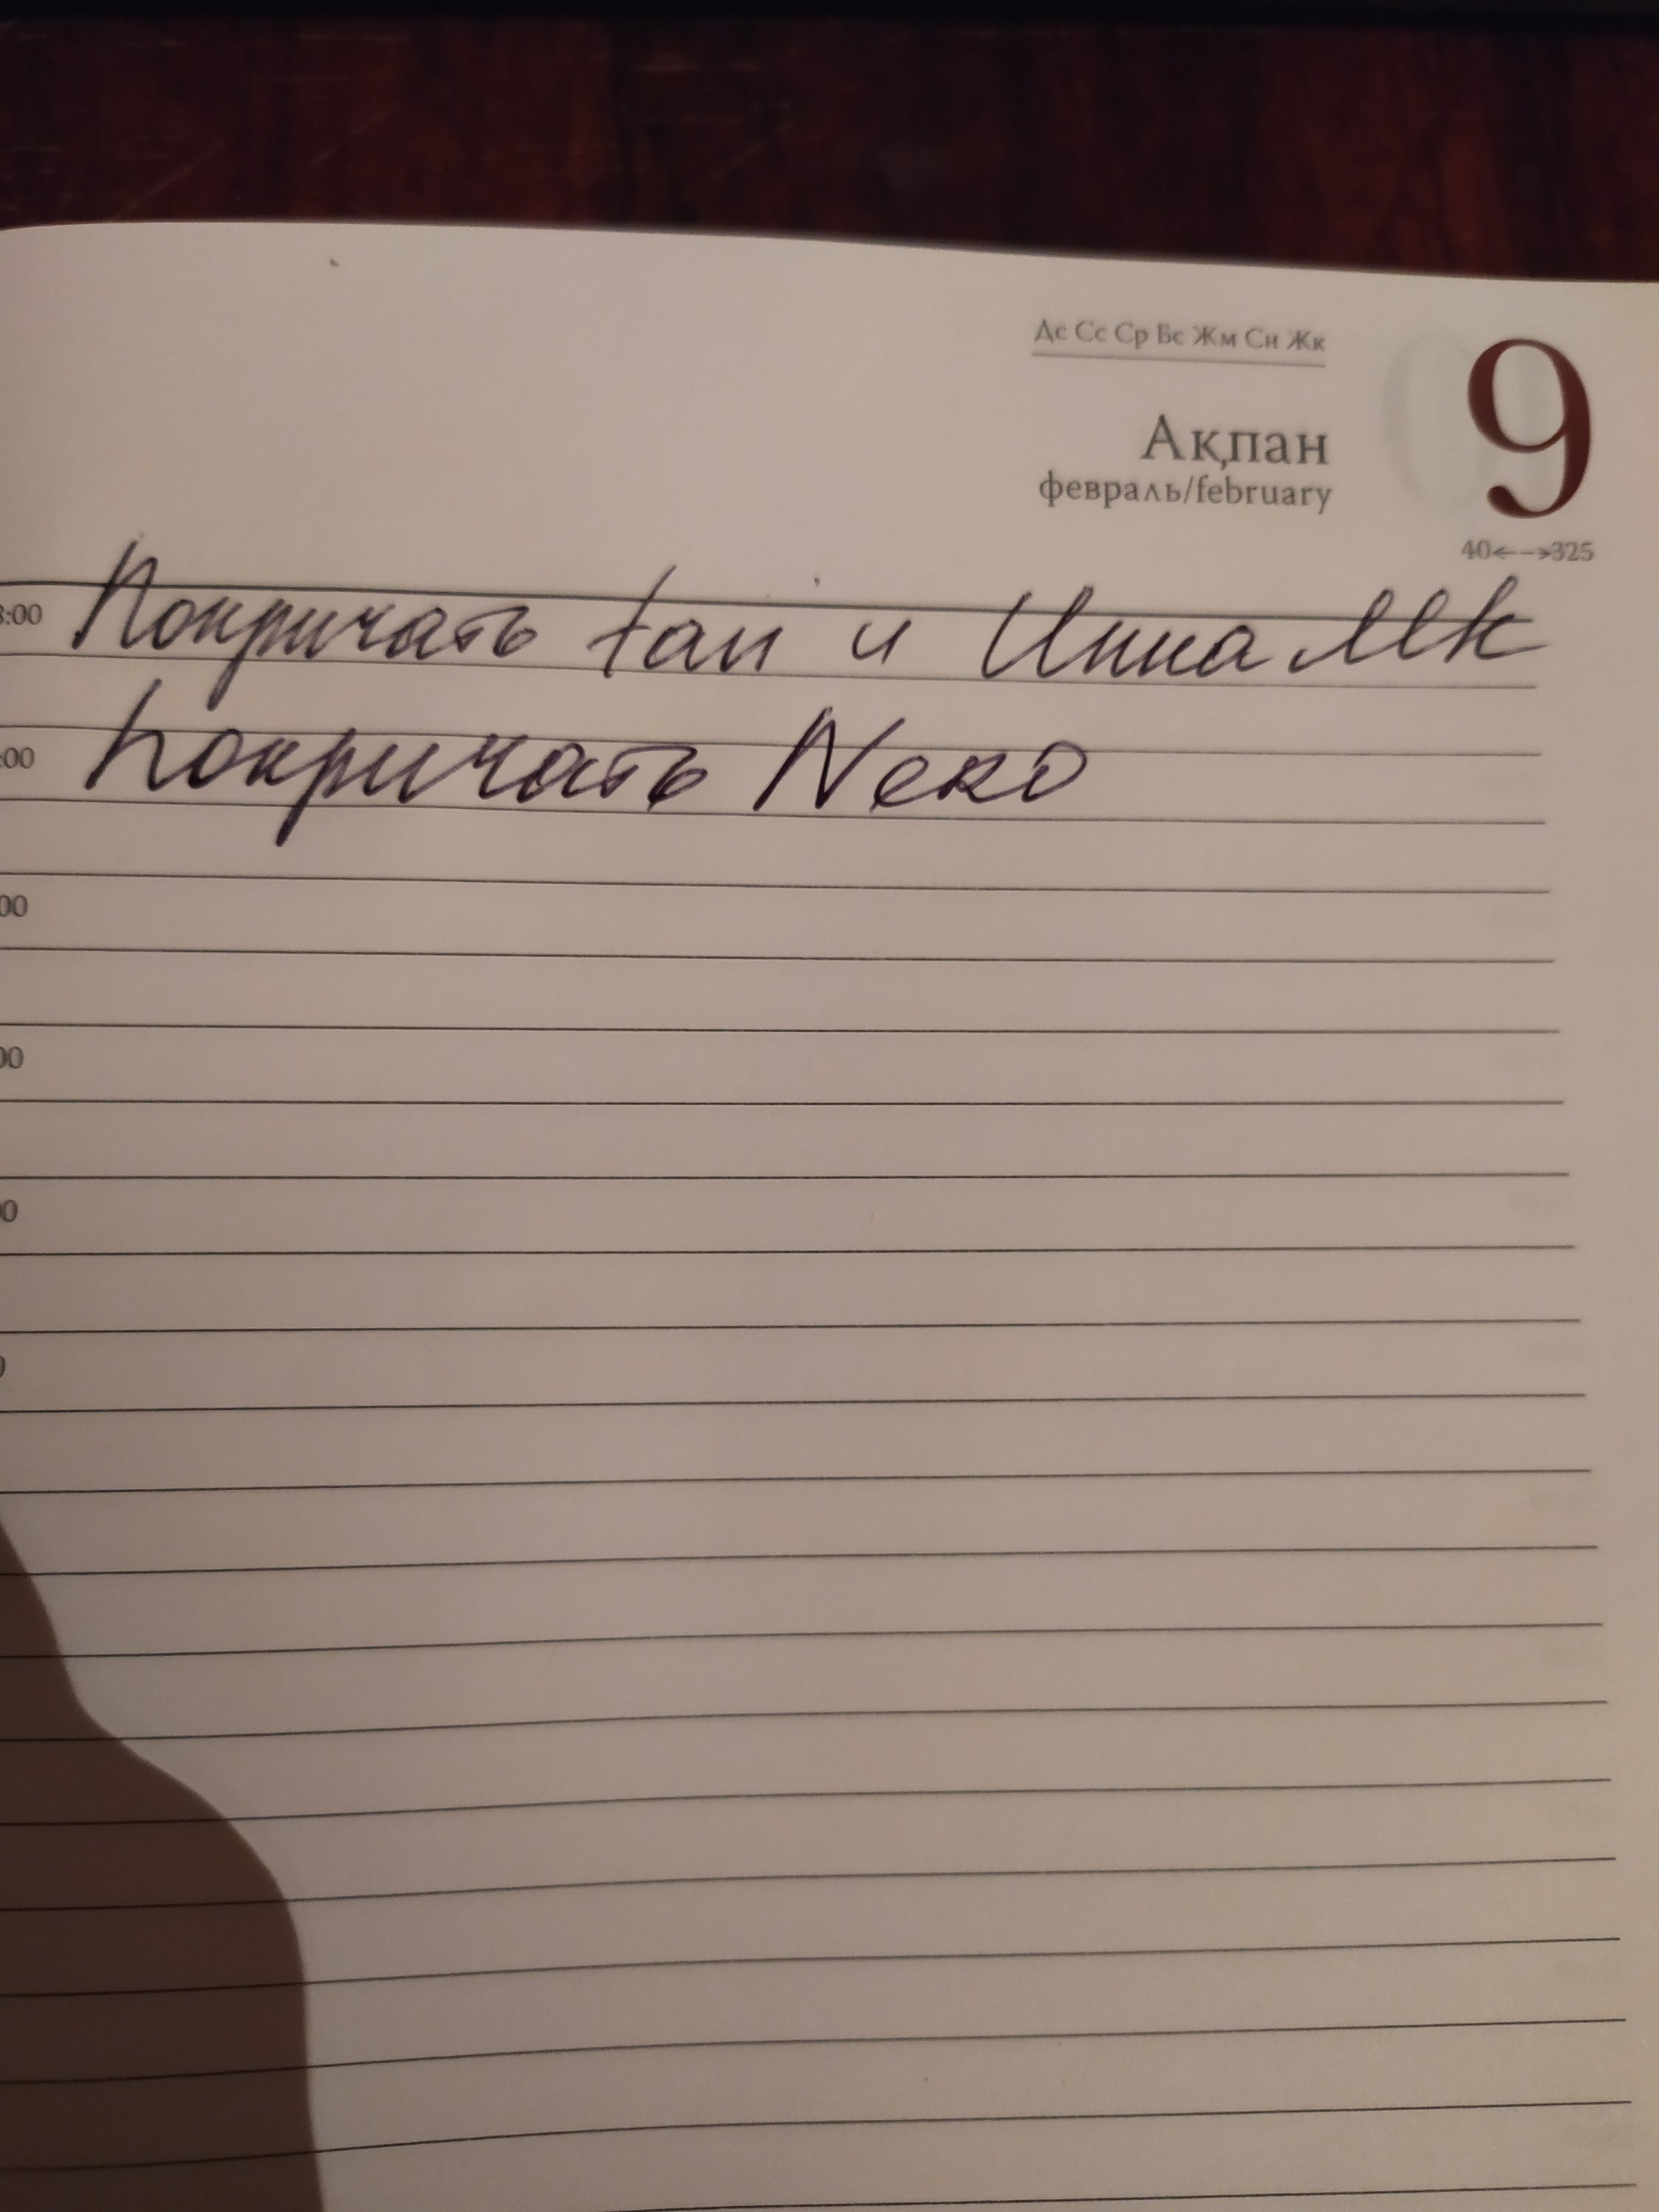 Дс Сс Ср Бс Жм Сн Жк
9
Ақпан
февраль/february
40←--→325
8:00
Покричать tan и Инна МК
:00
Покричать Neko
00
00
00
0